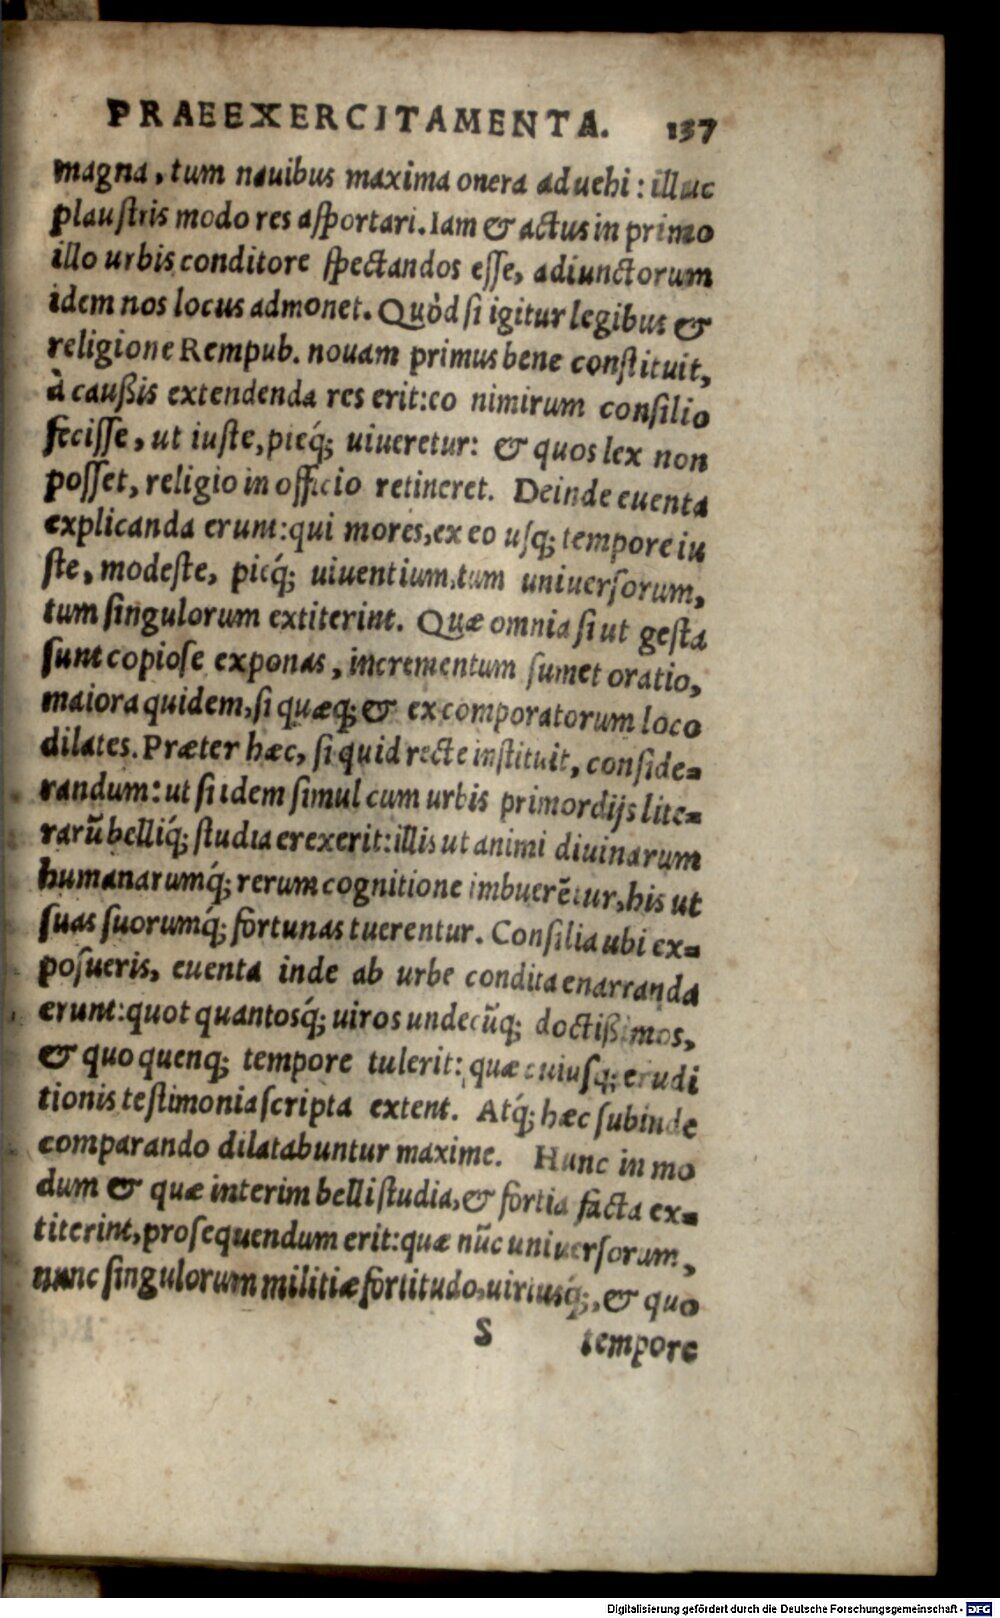 PRAEEXERCITAMENTA. 137
magna, tum nauibus maxima onera aduehi: illuc
plaustris modo res asportari. Iam & actus in primo
illo urbis conditore spectandos esse, adiunctorum
idem nos locus admonet. Quòd si igitur legibus &
religione Rempub. nouam primus bene constituit,
à caußis extendenda res erit: eo nimirum consilio
fecisse, ut iuste, pieq́; uiueretur: & quos lex non
posset, religio in officio retineret. Deinde euenta
explicanda erunt: qui mores, ex eo usq; tempore iu
ste, modeste, pieq́; uiuentium, tum uniuersorum,
tum singulorum extiterint. Quæ omnia si ut gesta
sunt copiose exponas, incrementum sumet oratio,
maiora quidem, si quæq; & ex comporatorum loco
dilates. Præter hæc, si quid recte instituit, conside=
randum: ut si idem simul cum urbis primordijs lite=
rarũ belliq́; studia erexerit: illis ut animi diuinarum
humanarumq́; rerum cognitione imbuerẽtur, his ut
suas suorumq́; fortunas tuerentur. Consilia ubi ex=
posueris, euenta inde ab urbe condita enarranda
erunt: quot quantosq́; uiros undecũq; doctißimos,
& quo quenq; tempore tulerit: quæ cuiusq; erudi
tionis testimonia scripta extent. Atq́; hæc subinde
comparando dilatabuntur maxime. Hunc in mo
dum & quæ interim belli studia, & fortia facta ex=
titerint, prosequendum erit: quæ nũc uniuersorum,
nunc singulorum militiæ fortitudo, uirtusq́;, & quo
S tempore
Digitalisierung gefördert durch die Deutsche Forschungsgemeinschaft - DFG